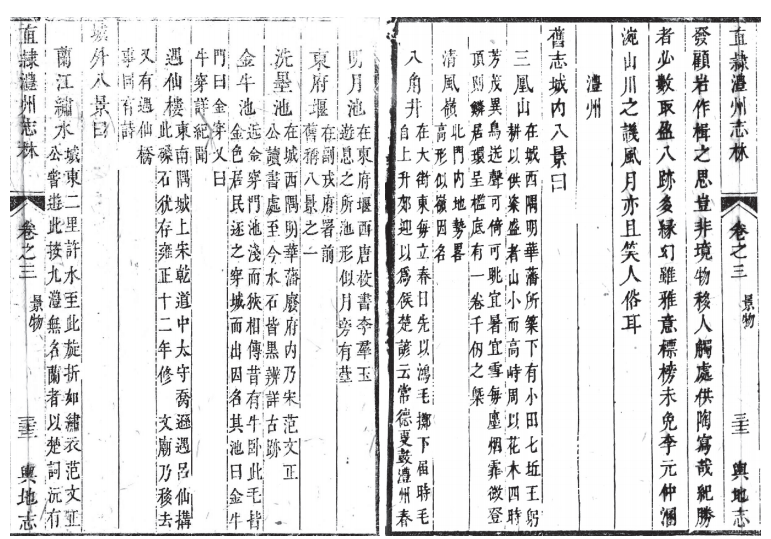 直隸澧州志林　卷之三　景物　三十三　輿地志
發顧岩作楫之思豈非境物移人觸處供陶寫哉紀勝
者必數取盈八跡多緣幻雖雅意標榜未免李元仲溷
涴山川之譏風月亦且笑人俗耳
澧州
舊志城内八景曰
三凰山　在城西隅明華藩所築下有小田七坵王躬
耕以供粢盛者山小而高峙周以花木四時
芳茂異鳥送聲可倚可眺宜暑宜雪每塵烟霏微登
頂則鱗居環呈檻底有一卷千仞之槩
清風嶺　北門内地勢畧
高形似嶺因名
八角井　在大街東每立春日先以鴻毛擲下屆時毛
自上升郊迎以為候楚諺云常德夏鼓澧州春
明月池　在東府堰西唐校書李羣玉
遊息之所池形似月旁有
東府堰　在副戎府署前
舊稱八景之一
洗墨池　在城西隅明華藩廢府内乃宋范文正
公讀書處至今水石皆黑辨詳古跡
金牛池　近金穿門池淺而狹相傳昔有牛卧此毛皆
金色居民逐之穿城而出因名其池曰金牛
門曰金穿又曰
牛穿詳紀聞
遇仙樓　東南隅城上宋乾道中太守喬遜遇呂仙搆
此礫石猶存雍正十二年修　文廟乃移去
又有遇仙橋
事同有詩
城外八景曰
蘭江繡水　城東二里許水至此旋折如繡衣范文正
公嘗遊此按九澧無名蘭者以楚詞沅有
直隸澧州志林　卷之三　景物　三十三　輿地志